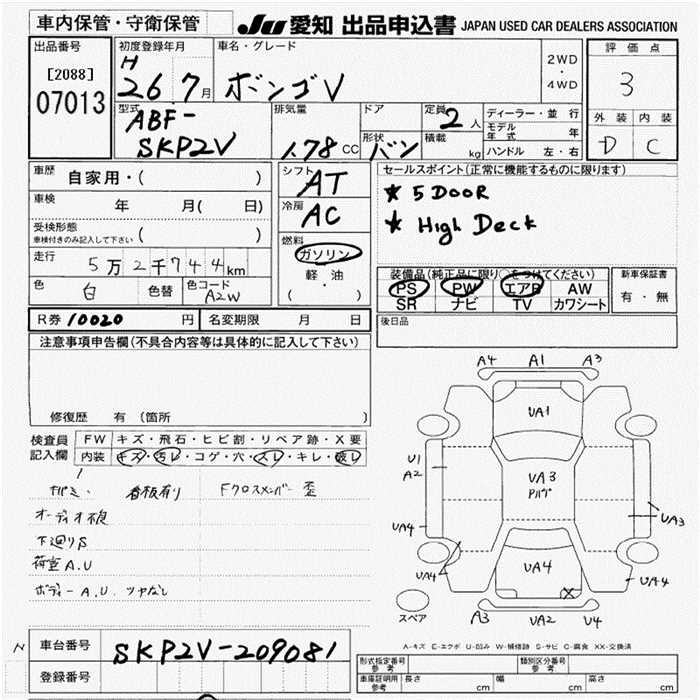 車内保管・守衛保管
JU 愛知 出品申込書 JAPAN USED CAR DEALERS ASSOCIATION
出品番号
[2088]
07013
初度登録年月
H
26年7月
車名・グレード
ボンゴV
2WD
・
4WD
評価点
3
外装 内装
D C
型式
ABF-
SKP2V
排気量
1.78 CC
ドア
形状
バン
定員
2人
積載
kg
ディーラー・並行
モデル年式 年
ハンドル 左・右
車歴 自家用・( )
車検 年 月( 日)
受検形態
車検付きのみ記入して下さい ( )
走行 5万2千744km
色 白 色替 色コード A2W
シフト
AT
冷房
AC
燃料
ガソリン
軽・油
( ・ )
セールスポイント(正常に機能するものに限ります)
★ 5 DOOR
★ High Deck
装備品(純正品に限り○をつけてください)
PS PW エアB AW
SR ナビ TV カワシート
新車保証書
有・無
R券 10020 円 名変期限 月 日
後日品
注意事項申告欄(不具合内容等は具体的に記入して下さい)
修復歴 有(箇所 )
検査員
記入欄
FW キズ・飛石・ヒビ割・リペア跡・X要
内装 キズ・汚レ・コゲ・穴・スレ・キレ・破レ
看板有り Fクロスメンバー歪
オーディオ不良
下廻りS
荷室A.U
ボディーA.U. ツヤなし
A4 A1 A3
UA1
U1
A2
UA3
Pパゲ
UA3
UA4
UA4
UA4
X
UA4
スペア
A3 UA2 U4
A-キズ E-エクボ U-凹み W-補修跡 S-サビ C-腐食 XX-交換済
N
車台番号 SKP2V-209081
登録番号
型式指定番号
参考
類別区分番号
参考
車庫証明用
参考
長さ cm 幅 cm 高さ cm